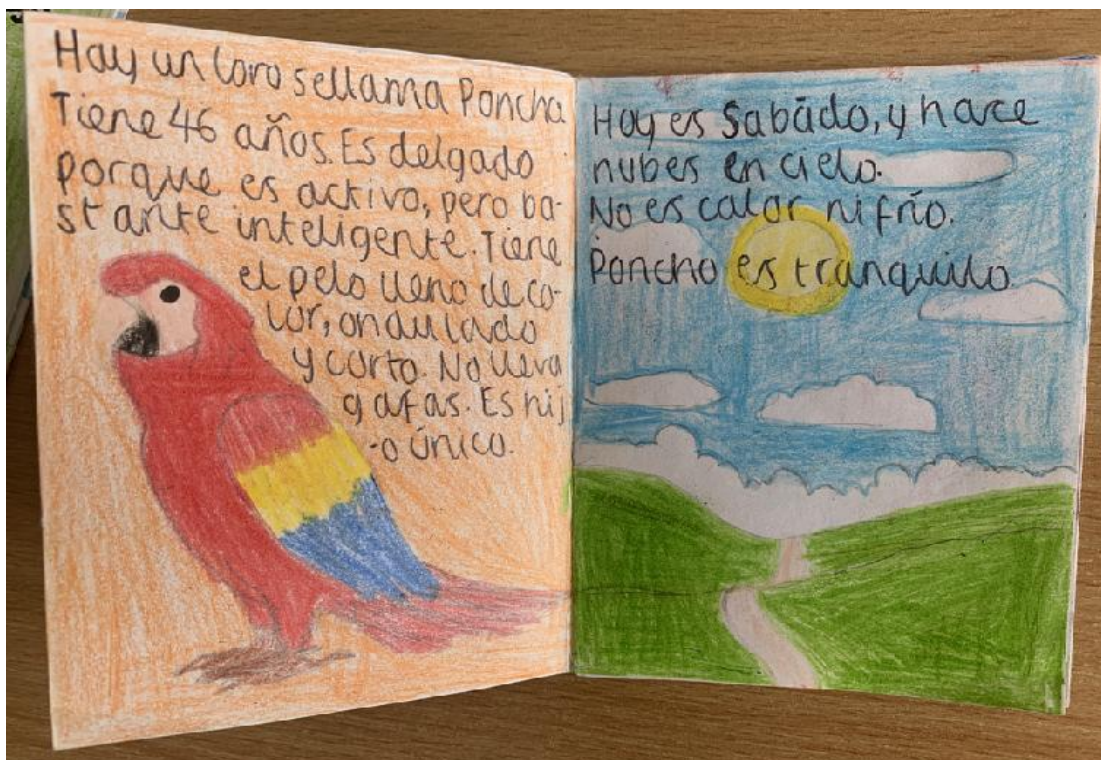 Hay un loro se llama Poncho
Tiene 46 años. Es delgado
porque es activo, pero ba-
stante inteligente. Tiene
el pelo lleno de co-
lor, ondulado
y corto. No lleva
gafas. Es hij
-o único.
Hoy es Sabádo, y hace
nubes en cielo.
No es calor ni frío.
Poncho es tranquilo